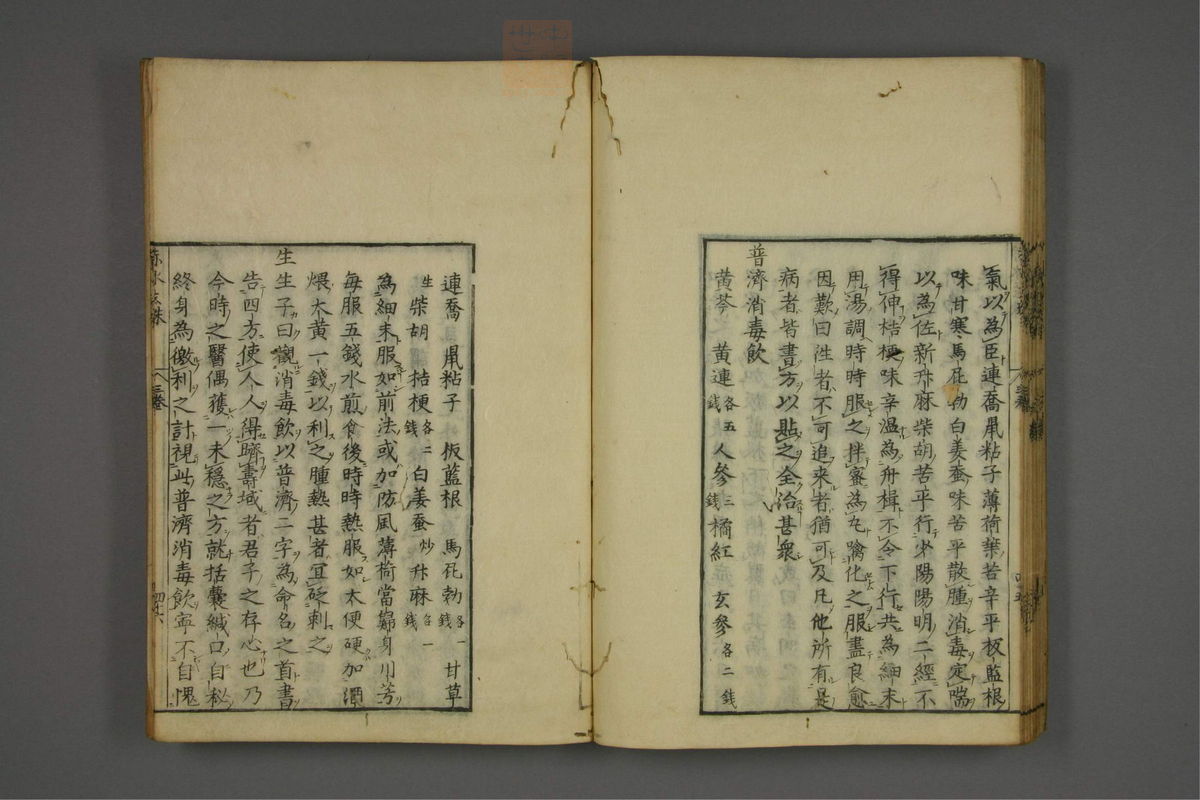 氣以為臣連喬鼠粘子薄荷葉苦辛平板藍根
味甘寒馬屁勃白姜蚕味苦平散腫消毒定喘
以為佐新升麻柴胡苦平行少陽陽明二經不
得伸桔梗味辛溫為舟楫不令下行共為細末
用湯調時時服之拌蜜為丸噙化之服盡良愈
因歎曰往者不可追来者猶可及凡他所有是
病者皆書方以貼之全治甚衆
普濟消毒飲
黄芩 黄連各五錢人參三錢橘紅 玄參各二錢
連喬 鼠粘子 板藍根 馬屁勃各一錢甘草
生柴胡 桔梗各二錢白姜蚕炒升麻各一錢
為細末服如前法或加防風薄荷當歸身川芎
每服五錢水煎食後時時熱服如大便硬加酒
煨大黄一錢以利之腫熱甚者宜砭刺之
生生子曰觀消毒飲以普濟二字為命名之首書
告四方使人人得躋壽域者君子之存心也乃
今時之醫偶獲一未穩之方就括囊緘口自秘
終身為徼利之計視此普濟消毒飲寧不自愧
赤水玄珠
三卷
四十六